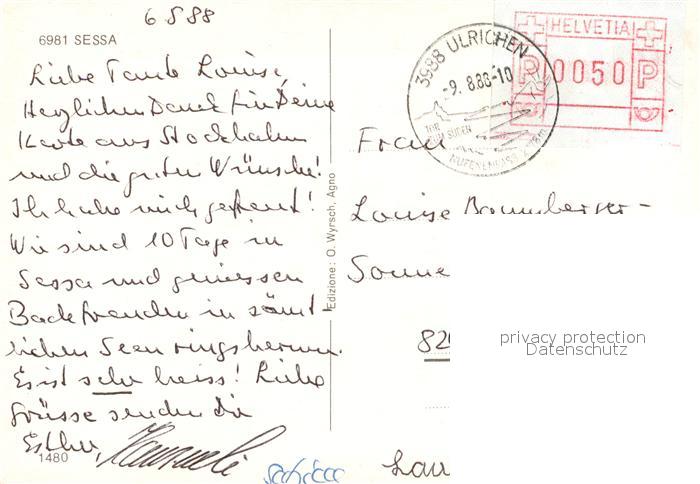 6 8 88
6981 SESSA
Liebe Tante Louise,
Herzlichen Dank für Deine
Karte aus Stockholm
und die guten Wünsche!
Ich habe mich gefreut!
Wir sind 10 Tage in
Sessa und geniessen
Badefreuden in sämt
lichen Seen ringsherum.
Es ist sehr heiss! Liebe
Grüsse senden Dir
Esther,
1480
Edizione: O. Wyrsch, Agno
3988 ULRICHEN
-9. 8.88-10
TOR
SÜDEN
NUFENENPASS
HELVETIA
P 0050 P
Frau
Louise Baumberger-
Sonne
820
privacy protection
Datenschutz